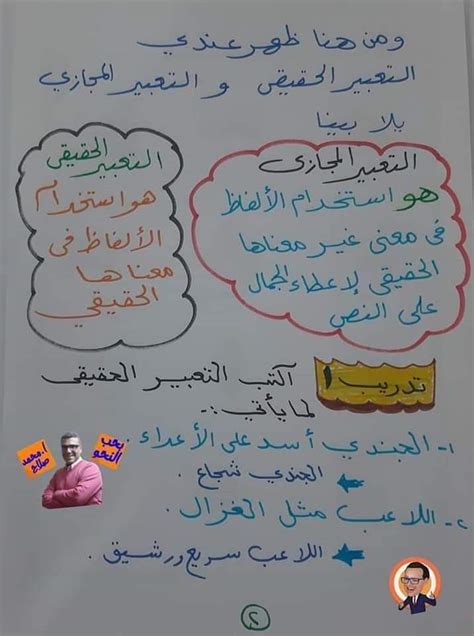 ومن هنا ظهر عندي
التعبير الحقيقي و التعبير المجازي
يلا بينا
التعبير المجازي
هو استخدام الألفاظ
في معنى غير معناها
الحقيقي لإعطاء الجمال
على النص
التعبير الحقيقي
هو استخدام
الألفاظ في
معناها
الحقيقي
تدريب ١ أكتب التعبير الحقيقي
لما يأتي :-
١- الجندي أسد على الأعداء .
الجندي شجاع .
٢- اللاعب مثل الغزال .
اللاعب سريع ورشيق .
أ. محمد
صلاح
بحب
النحو
٢